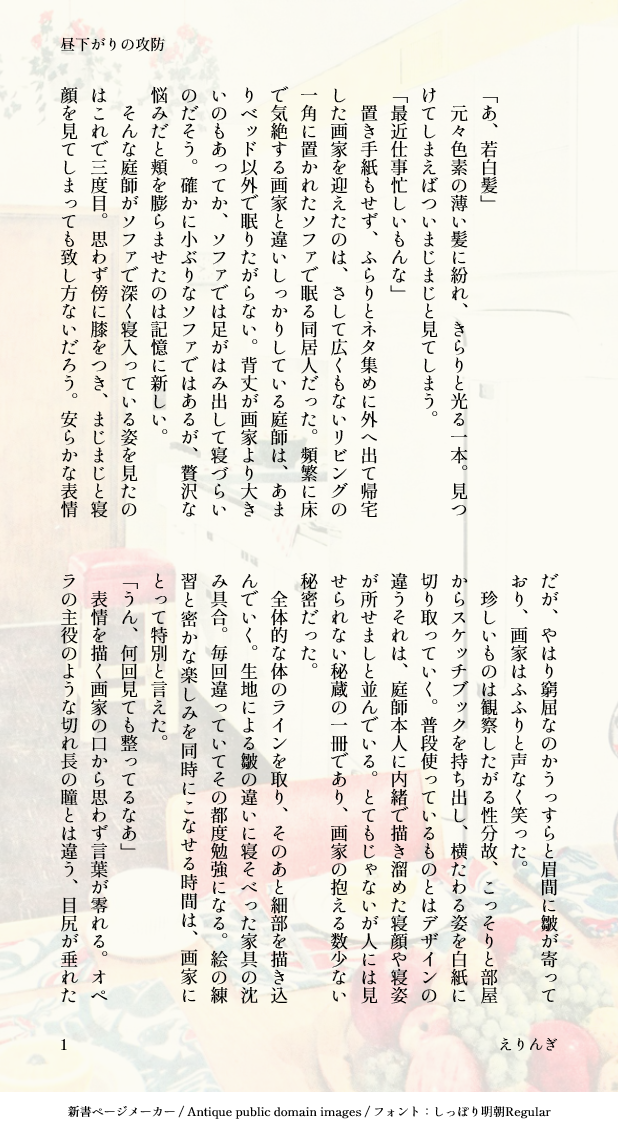 昼下がりの攻防
「あ、若白髪」
　元々色素の薄い髪に紛れ、きらりと光る一本。見つ
けてしまえばついまじまじと見てしまう。
「最近仕事忙しいもんな」
　置き手紙もせず、ふらりとネタ集めに外へ出て帰宅
した画家を迎えたのは、さして広くもないリビングの
一角に置かれたソファで眠る同居人だった。頻繁に床
で気絶する画家と違いしっかりしている庭師は、あま
りベッド以外で眠りたがらない。背丈が画家より大き
いのもあってか、ソファでは足がはみ出して寝づらい
のだそう。確かに小ぶりなソファではあるが、贅沢な
悩みだと頬を膨らませたのは記憶に新しい。
　そんな庭師がソファで深く寝入っている姿を見たの
はこれで三度目。思わず傍に膝をつき、まじまじと寝
顔を見てしまっても致し方ないだろう。安らかな表情
だが、やはり窮屈なのかうっすらと眉間に皺が寄って
おり、画家はふふりと声なく笑った。
　珍しいものは観察したがる性分故、こっそりと部屋
からスケッチブックを持ち出し、横たわる姿を白紙に
切り取っていく。普段使っているものとはデザインの
違うそれは、庭師本人に内緒で描き溜めた寝顔や寝姿
が所せましと並んでいる。とてもじゃないが人には見
せられない秘蔵の一冊であり、画家の抱える数少ない
秘密だった。
　全体的な体のラインを取り、そのあと細部を描き込
んでいく。生地による皺の違いに寝そべった家具の沈
み具合。毎回違っていてその都度勉強になる。絵の練
習と密かな楽しみを同時にこなせる時間は、画家に
とって特別と言えた。
「うん、何回見ても整ってるなあ」
　表情を描く画家の口から思わず言葉が零れる。オペ
ラの主役のような切れ長の瞳とは違う、目尻が垂れた
1
えりんぎ
新書ページメーカー / Antique public domain images / フォント：しっぽり明朝Regular